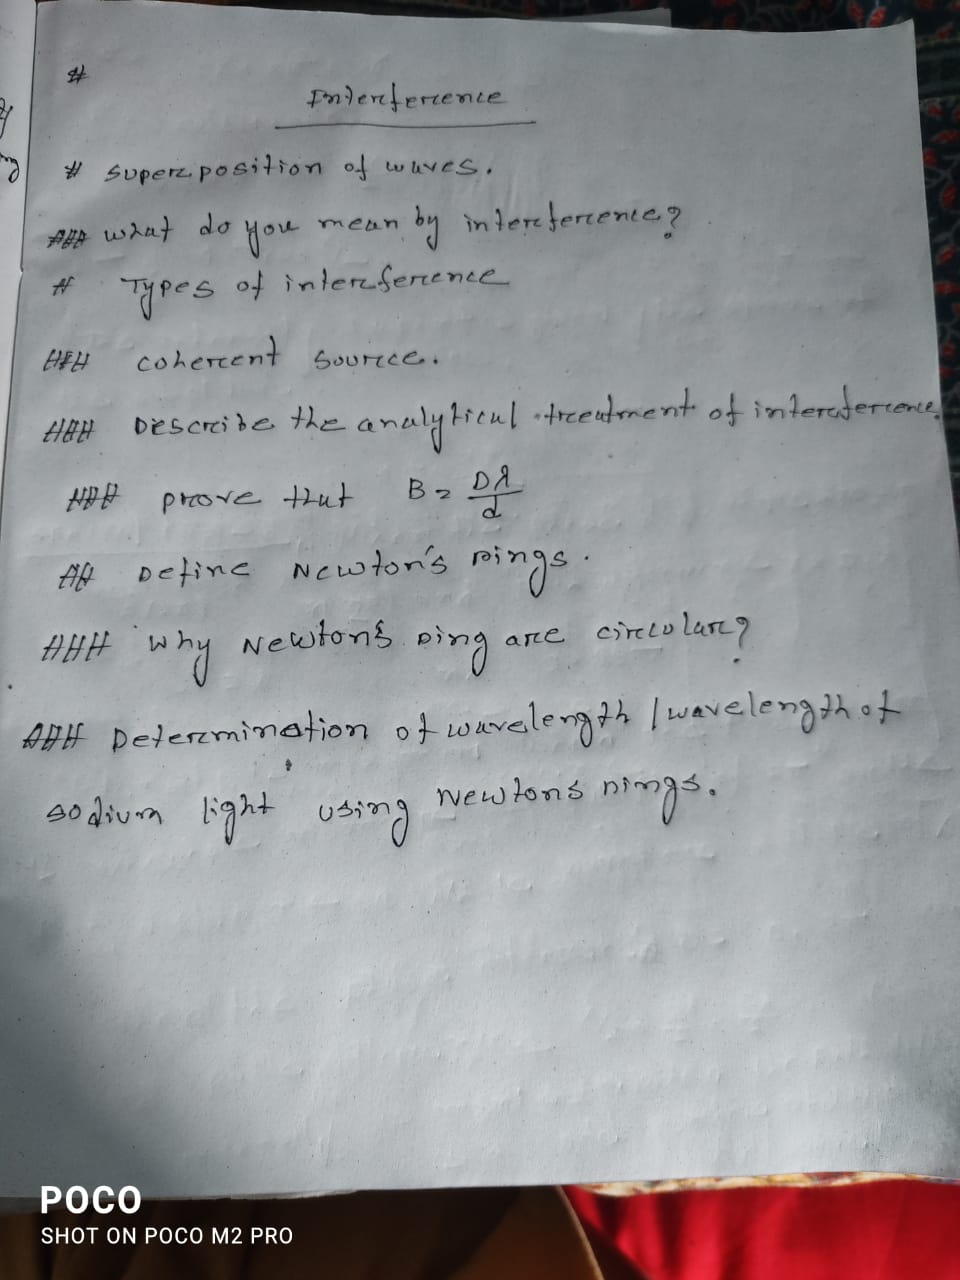 #
Interference
# Superposition of waves.
### What do you mean by interference?
# Types of interference
### coherent source.
### Describe the analytical treatment of interference.
### prove that B = Dλ/d
## Define Newton's rings.
### Why Newton's ring are circular?
### Determination of wavelength / wavelength of
sodium light using Newtons rings.
POCO
SHOT ON POCO M2 PRO